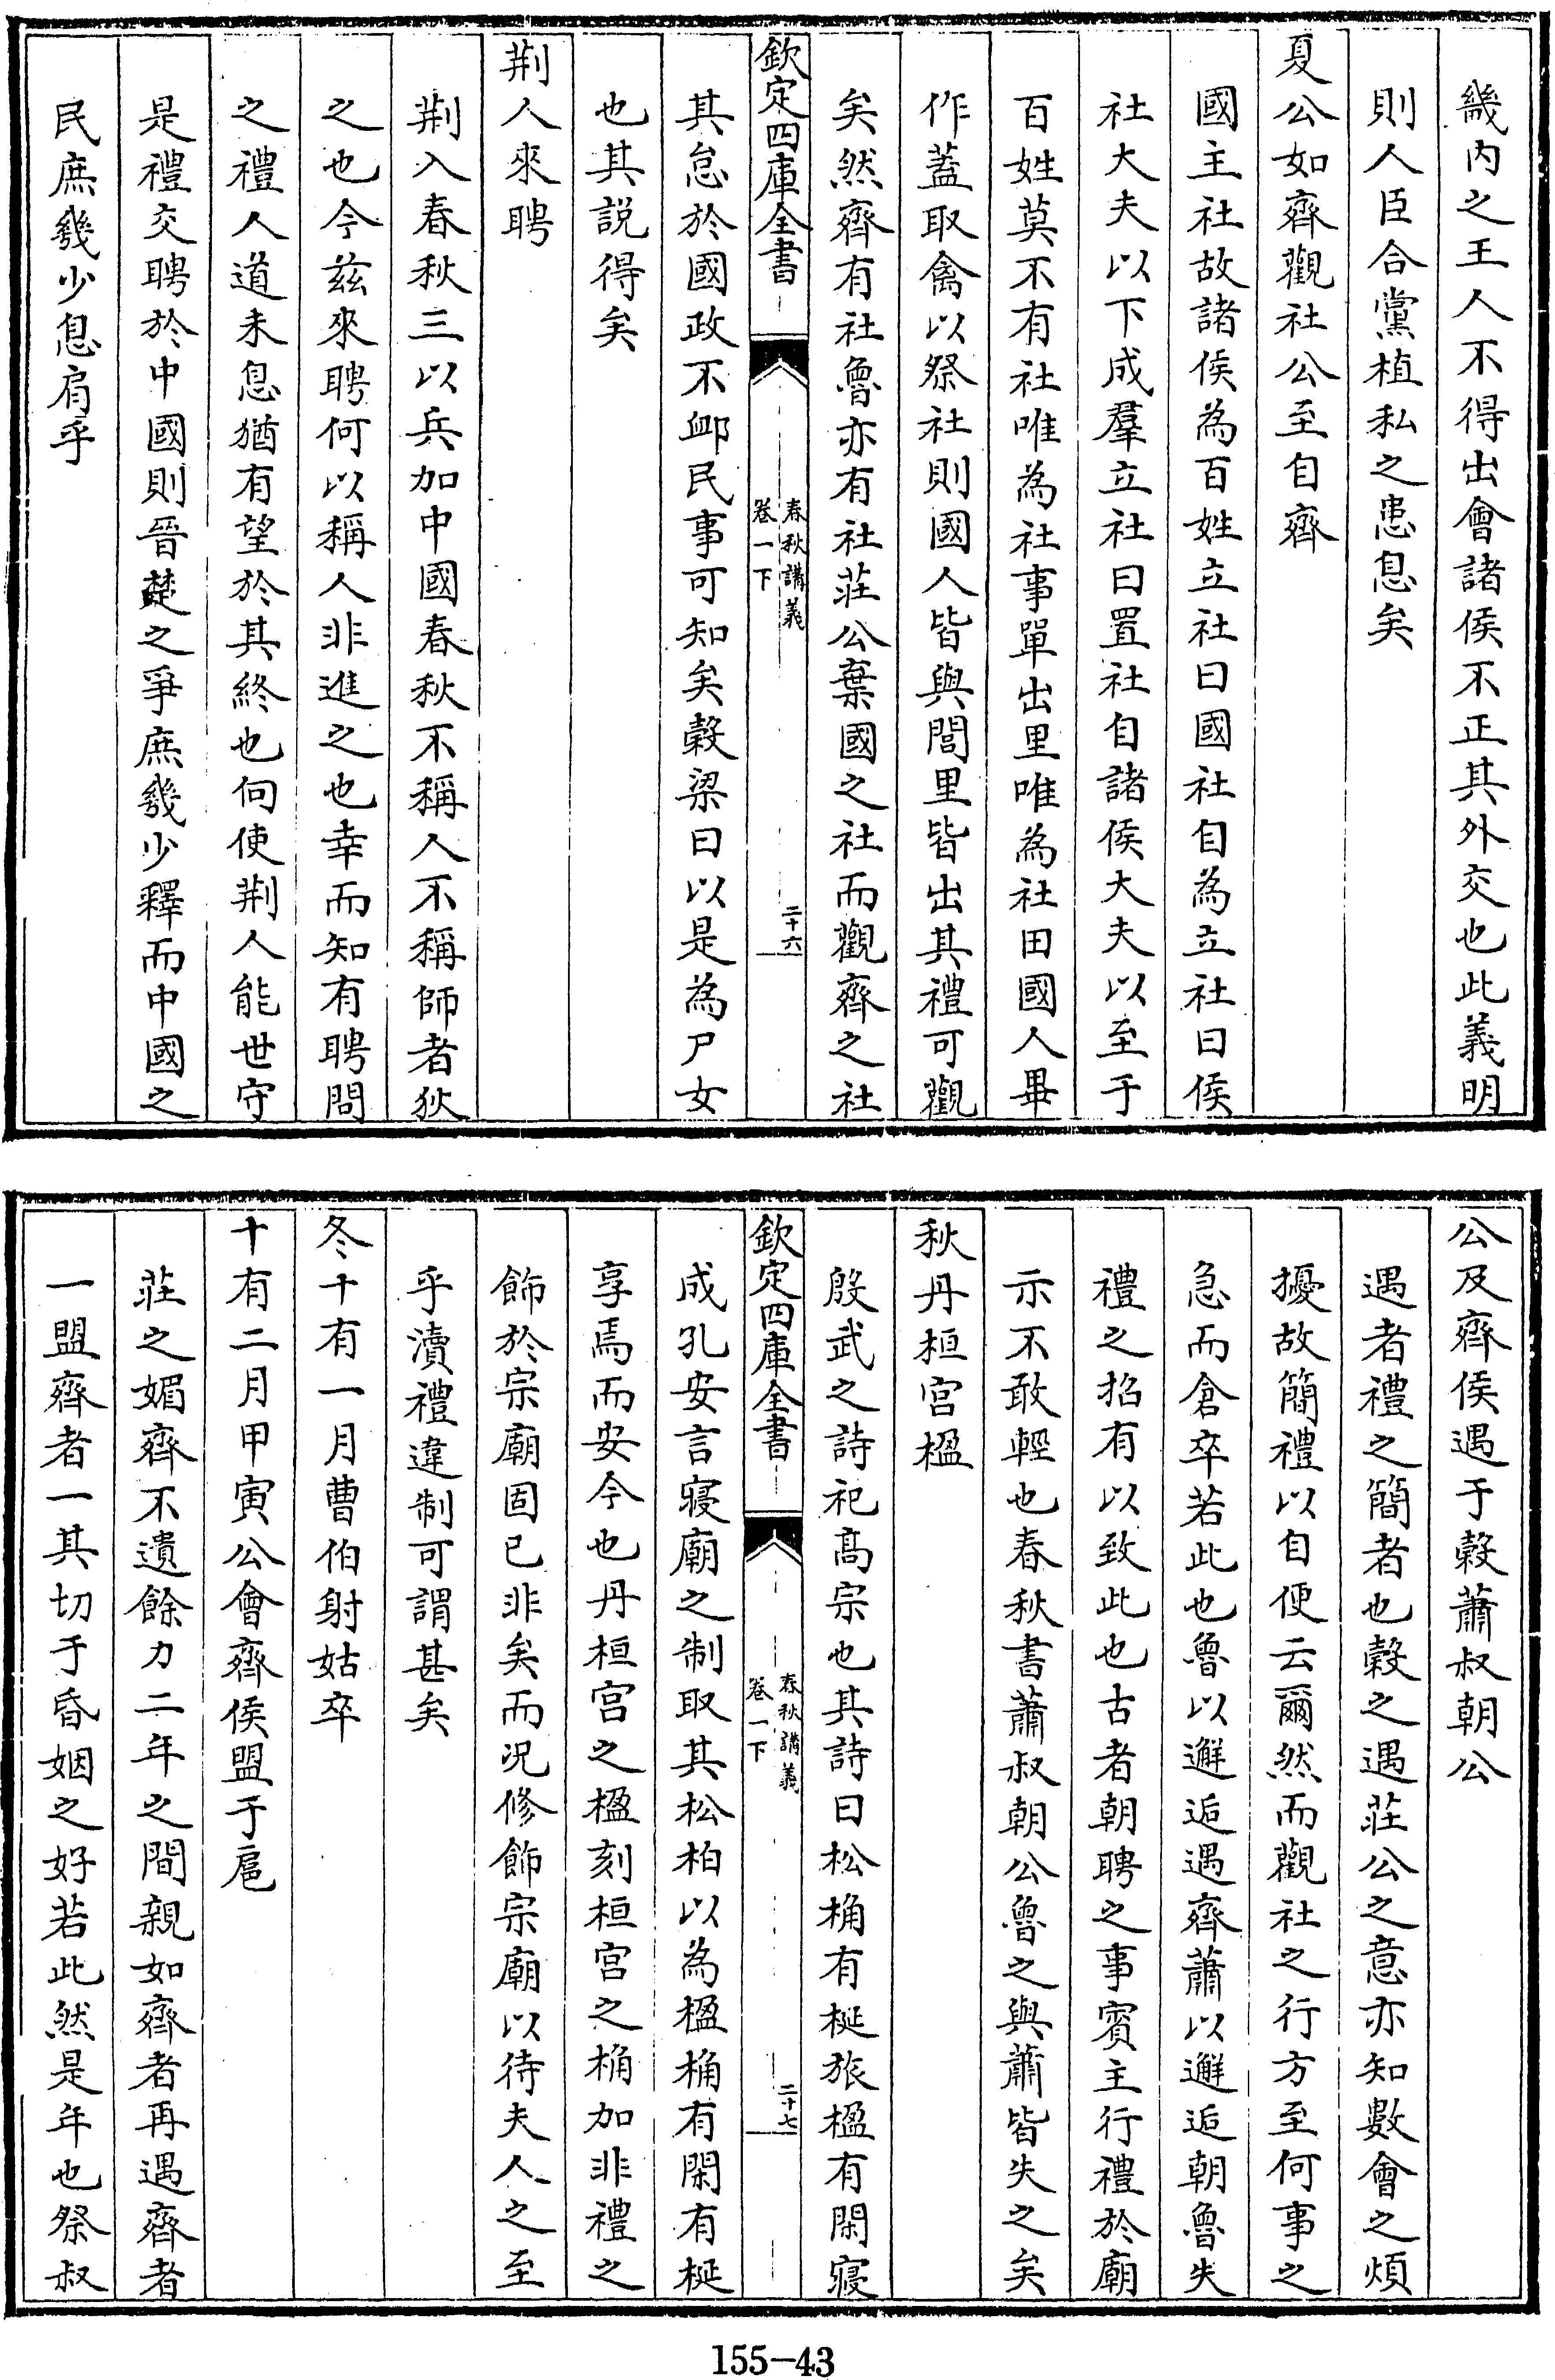 畿内之王人不得出會諸侯不正其外交也此義明
則人臣合黨植私之患息矣
夏公如齊觀社公至自齊
國主社故諸侯為百姓立社曰國社自為立社曰侯
社大夫以下成羣立社曰置社自諸侯大夫以至于
百姓莫不有社唯為社事單出里唯為社田國人畢
作蓋取禽以祭社則國人皆與閭里皆出其禮可觀
矣然齊有社魯亦有社莊公棄國之社而觀齊之社
欽定四庫全書
春秋講義
卷一下
二十六
其怠於國政不卹民事可知矣榖梁曰以是為尸女
也其説得矣
荆人來聘
荆入春秋三以兵加中國春秋不稱人不稱師者狄
之也今兹來聘何以稱人非進之也幸而知有聘問
之禮人道未息猶有望於其終也向使荆人能世守
是禮交聘於中國則晉楚之爭庶㡬少釋而中國之
民庶㡬少息肩乎
公及齊侯遇于榖蕭叔朝公
遇者禮之簡者也榖之遇莊公之意亦知數會之煩
擾故簡禮以自便云爾然而觀社之行方至何事之
急而倉卒若此也魯以邂逅遇齊蕭以邂逅朝魯失
禮之招有以致此也古者朝聘之事賓主行禮於廟
示不敢輕也春秋書蕭叔朝公魯之與蕭皆失之矣
秋丹桓宫楹
殷武之詩祀髙宗也其詩曰松桷有梴旅楹有閑寢
欽定四庫全書
春秋講義
卷一下
二十七
成孔安言寢廟之制取其松柏以為楹桷有閑有梴
享焉而安今也丹桓宫之楹刻桓宫之桷加非禮之
飾於宗廟固已非矣而况修飾宗廟以待夫人之至
乎瀆禮違制可謂甚矣
冬十有一月曹伯射姑卒
十有二月甲寅公會齊侯盟于扈
莊之媚齊不遺餘力二年之間親如齊者再遇齊者
一盟齊者一其切于昏姻之好若此然是年也祭叔
155-43